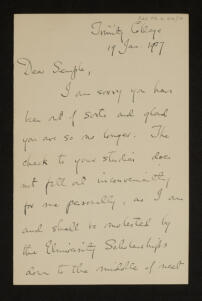 Trinity College
19 Jan. 1927
Dear Semple,
I am sorry you have
been out of sorts and glad
you are so no longer. The
check to your studies does
not fall out inconveniently
for me personally, as I am
and shall be molested by
the University Scholarships
down to the middle of next